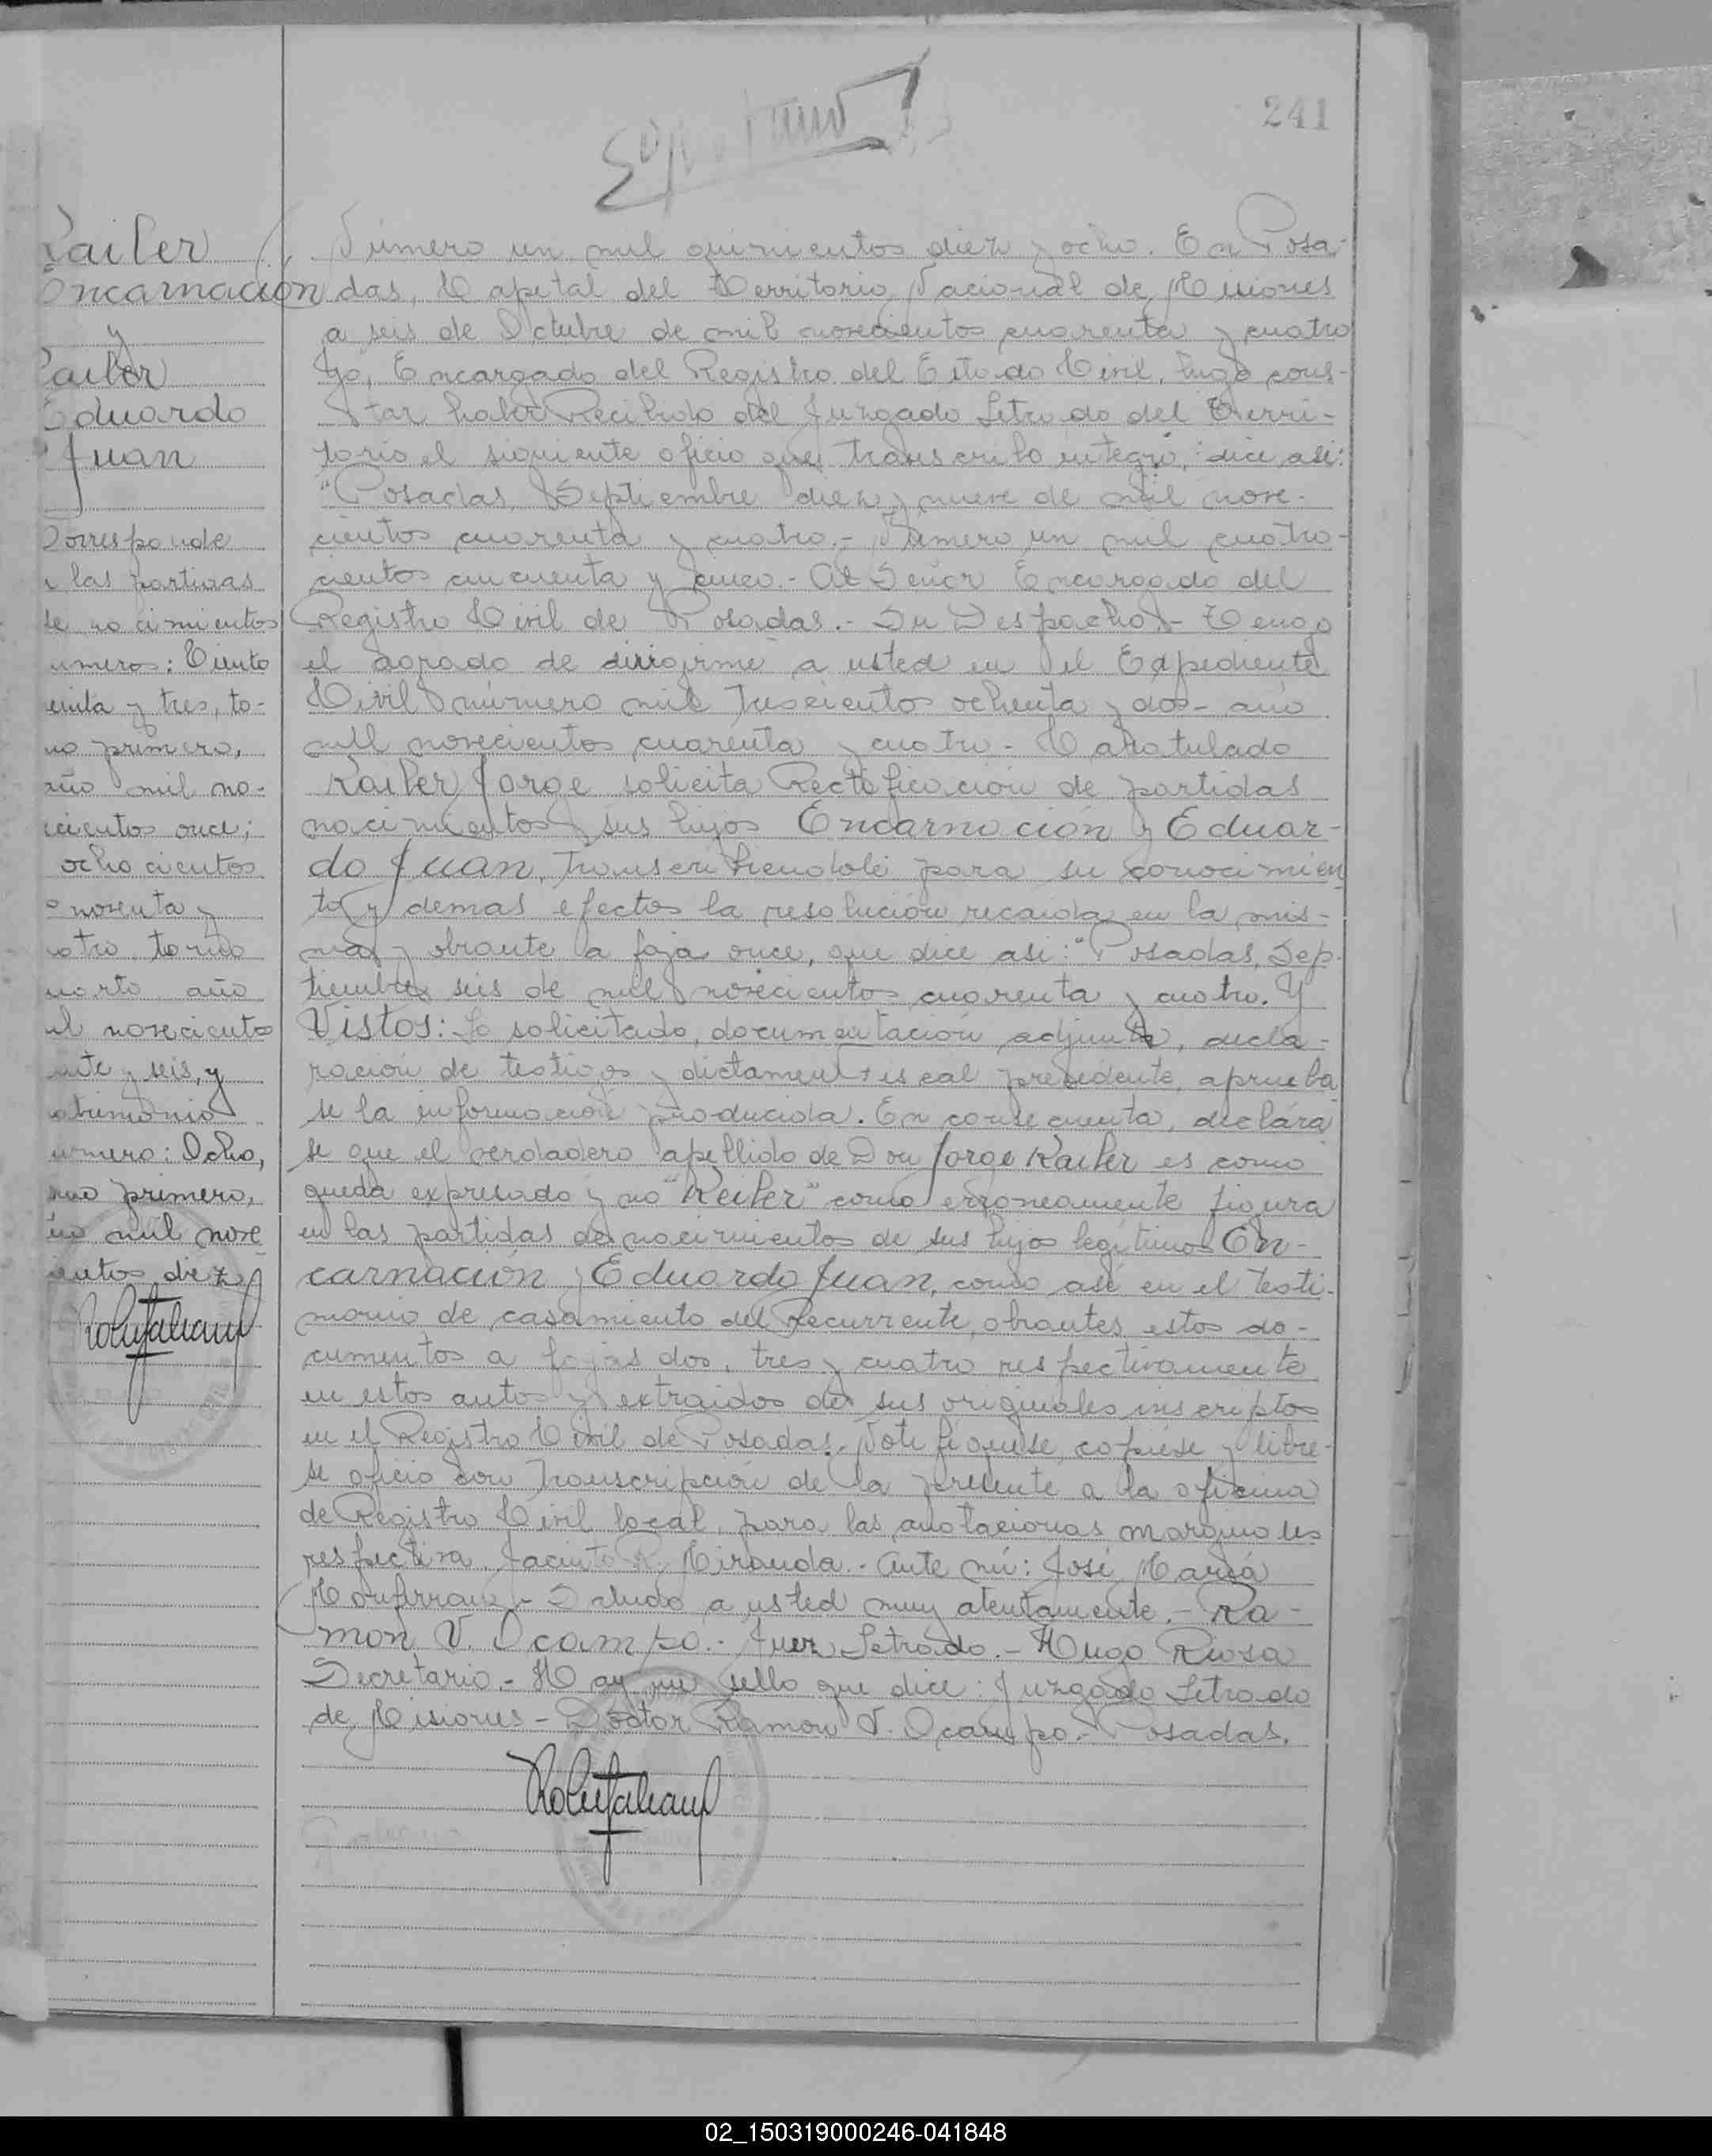 241
Kailer
Encarnación
y
Kailer
Eduardo
Juan
Corresponde
a las partidas
de nacimientos
úmeros: Ciento
enta y tres, to-
mo primero,
año mil no-
vecientos once;
ochocientos
noventa y
uatro, tomo
uarto, año
mil novecientos
inte y seis, y
atrimonio
úmero: Ocho,
mo primero,
ño mil nove
ientos diez
Número un mil quinientos diez y ocho. En Posa-
das, Capital del Territorio Nacional de Misiones
a seis de Octubre de mil novecientos cuarenta y cuatro
Yó, Encargado del Registro del Estado Civil, hago cons-
tar haber Recibido del Juzgado Letrado del Terri-
torio el siguiente oficio que transcribo integro, dice asi:
"Posadas, Septiembre diez y nueve de mil nove-
cientos cuarenta y cuatro.- Número un mil cuatro-
cientos cincuenta y cinco.- Al Señor Encargado del
Registro Civil de Posadas.- Su Despacho.- Tengo
el agrado de dirigirme a usted en el Expediente
Civil número mil trescientos ochenta y dos- año
mil novecientos cuarenta y cuatro- Caratulado
Kailer Jorge solicita Rectificación de partidas
nacimientos y sus hijos Encarnación y Eduar-
do Juan, transcribiendole para su conocimien
to y demas efectos la resolución recaida en la mis-
ma y obrante a foja once, que dice asi: "Posadas, Sep-
tiembre seis de mil novecientos cuarenta y cuatro. Y
Vistos: Lo solicitado, documentación adjunta, decla-
ración de testigos y dictamen fiscal precedente, aprueba
se la información producida. En consecuencia, declára
se que el verdadero apellido de Don Jorge Kailer es como
queda expresado y no "Keiler" como erroneamente figura
en las partidas de nacimientos de sus hijos legítimos En-
carnación y Eduardo Juan, como asi en el testi-
monio de casamiento del Recurrente, obrantes estos do-
cumentos a fojas dos, tres y cuatro respectivamente
en estos autos y extraidos de sus originales inscriptos
en el Registro Civil de Posadas. Notifiquese, copiese y libre-
se oficio con transcripción de la presente a la oficina
de Registro Civil local, para las anotaciones marginales
respectiva. Jacinto R. Miranda.- Ante mí: José María
- Saludo a usted muy atentamente.- Ra-
mon V. Ocampo.- Juez Letrado.- Hugo
Secretario.- Hay un sello que dice: Juzgado Letrado
de Misiones- Doctor Ramon V. Ocampo.- Posadas.
02_150319000246-041848